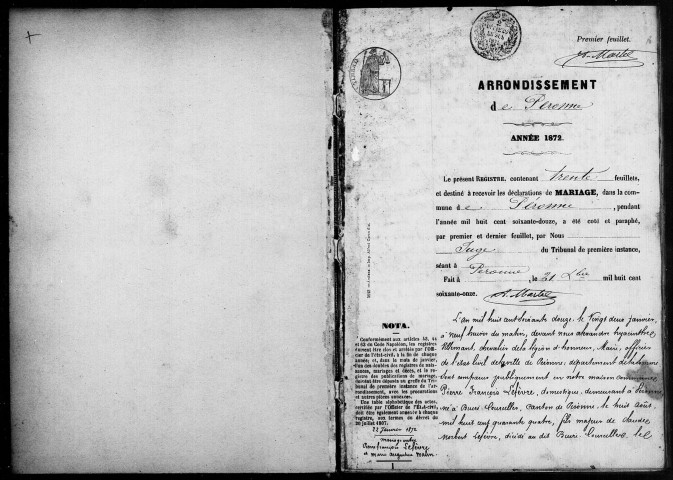 Premier feuillet.
A. Martel
ARRONDISSEMENT
de Péronne
ANNÉE 1872.
Le présent REGISTRE, contenant trente feuillets,
et destiné à recevoir les déclarations de MARIAGE, dans la com-
mune de Péronne, pendant
l'année mil huit cent soixante-douze, a été coté et paraphé,
par premier et dernier feuillet, par Nous
Juge du Tribunal de première instance,
séant à Péronne
Fait à , le 21 Xbre mil huit cent
soixante-onze. A. Martel
NOTA.
Conformément aux articles 42, 43
et 63 du Code Napoléon, les registres
doivent être clos et arrêtés par l'Offi-
cier de l'Etat-civil, à la fin de chaque
année; et, dans le mois de janvier,
l'un des doubles des registres de nais-
sances, mariages et décès, et le re-
gistre des publications de mariage,
doivent être déposés au greffe du Tri-
bunal de première instance de l'ar-
rondissement, avec les procurations
et autres pièces annexées.
Une table alphabétique des actes,
certifiée par l'Officier de l'Etat-civil,
doit être également annexée à chaque
registre, aux termes du décret du
20 juillet 1807.
22 Janvier 1872
mariage entre
Pierre François Lefèvre
et marie Augustine
L'An mil huit cent soixante douze, le Vingt deux janvier,
à neuf heures du matin, devant nous Alexandre Hyacinthe
chevalier de la légion d'honneur, Maire, officier
de l'état civil de la ville de Péronne, département de la Somme
sont comparus publiquement en notre maison commune
Pierre François Lefèvre, domestique, demeurant à Péronne
né à Buire-Courcelles, canton de Péronne, le huit Août
mil huit cent quarante quatre, fils majeur de
Norbert Lefèvre, décédé au dit Buire Courcelles, le